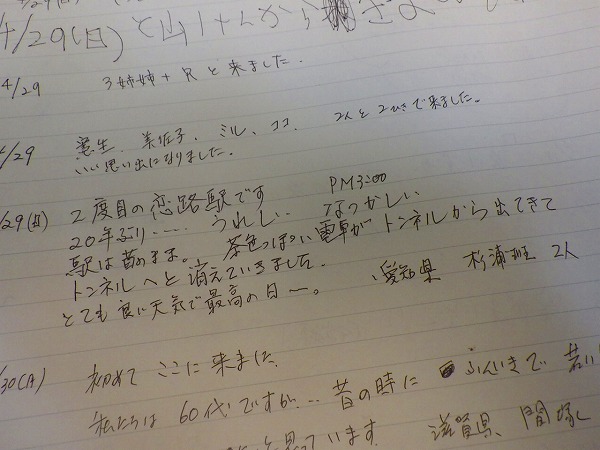 4/29(日)
4/29 3姉妹+兄と来ました.
4/29 美佐子、ミル、ココ、2人と2ひきで来ました。
いい思い出になりました.
29(日) 2度目の恋路駅です PM3:00
20年ぶり…… うれしい.. なつかしい
駅は昔のまま。茶色っぽい電車が トンネルから出てきて
トンネルへと消えていきました.
とても良い天気で最高の日〜。 愛知県 杉浦班 2人
30(月) 初めてここに来ました.
私たちは 60代ですが… 昔の時に ふんいきで 若い
います 滋賀県